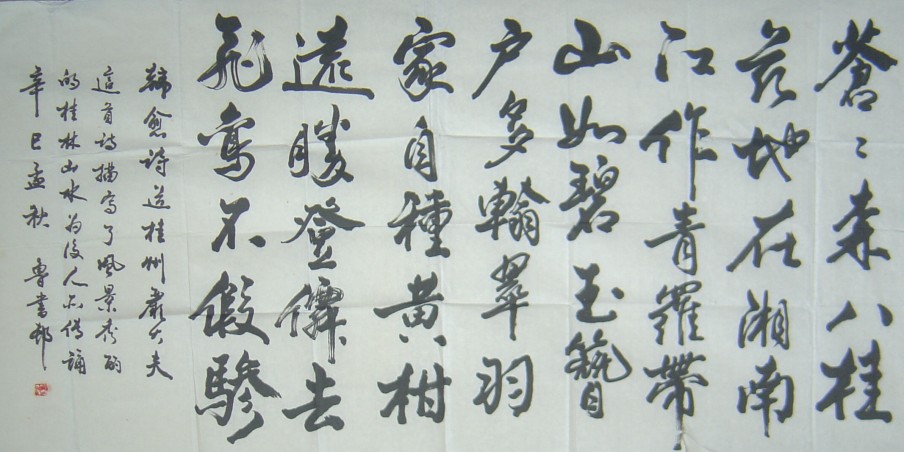 蒼〻森八桂
茲地在湘南
江作青羅帶
山如碧玉簪
户多翰翠羽
家自種黄柑
遠勝登僊去
飛鸞不假驂
韓愈詩送桂州嚴大夫
這首詩描寫了風景秀麗
的桂林山水為後人所傳誦
辛巳孟秋 魯書邨